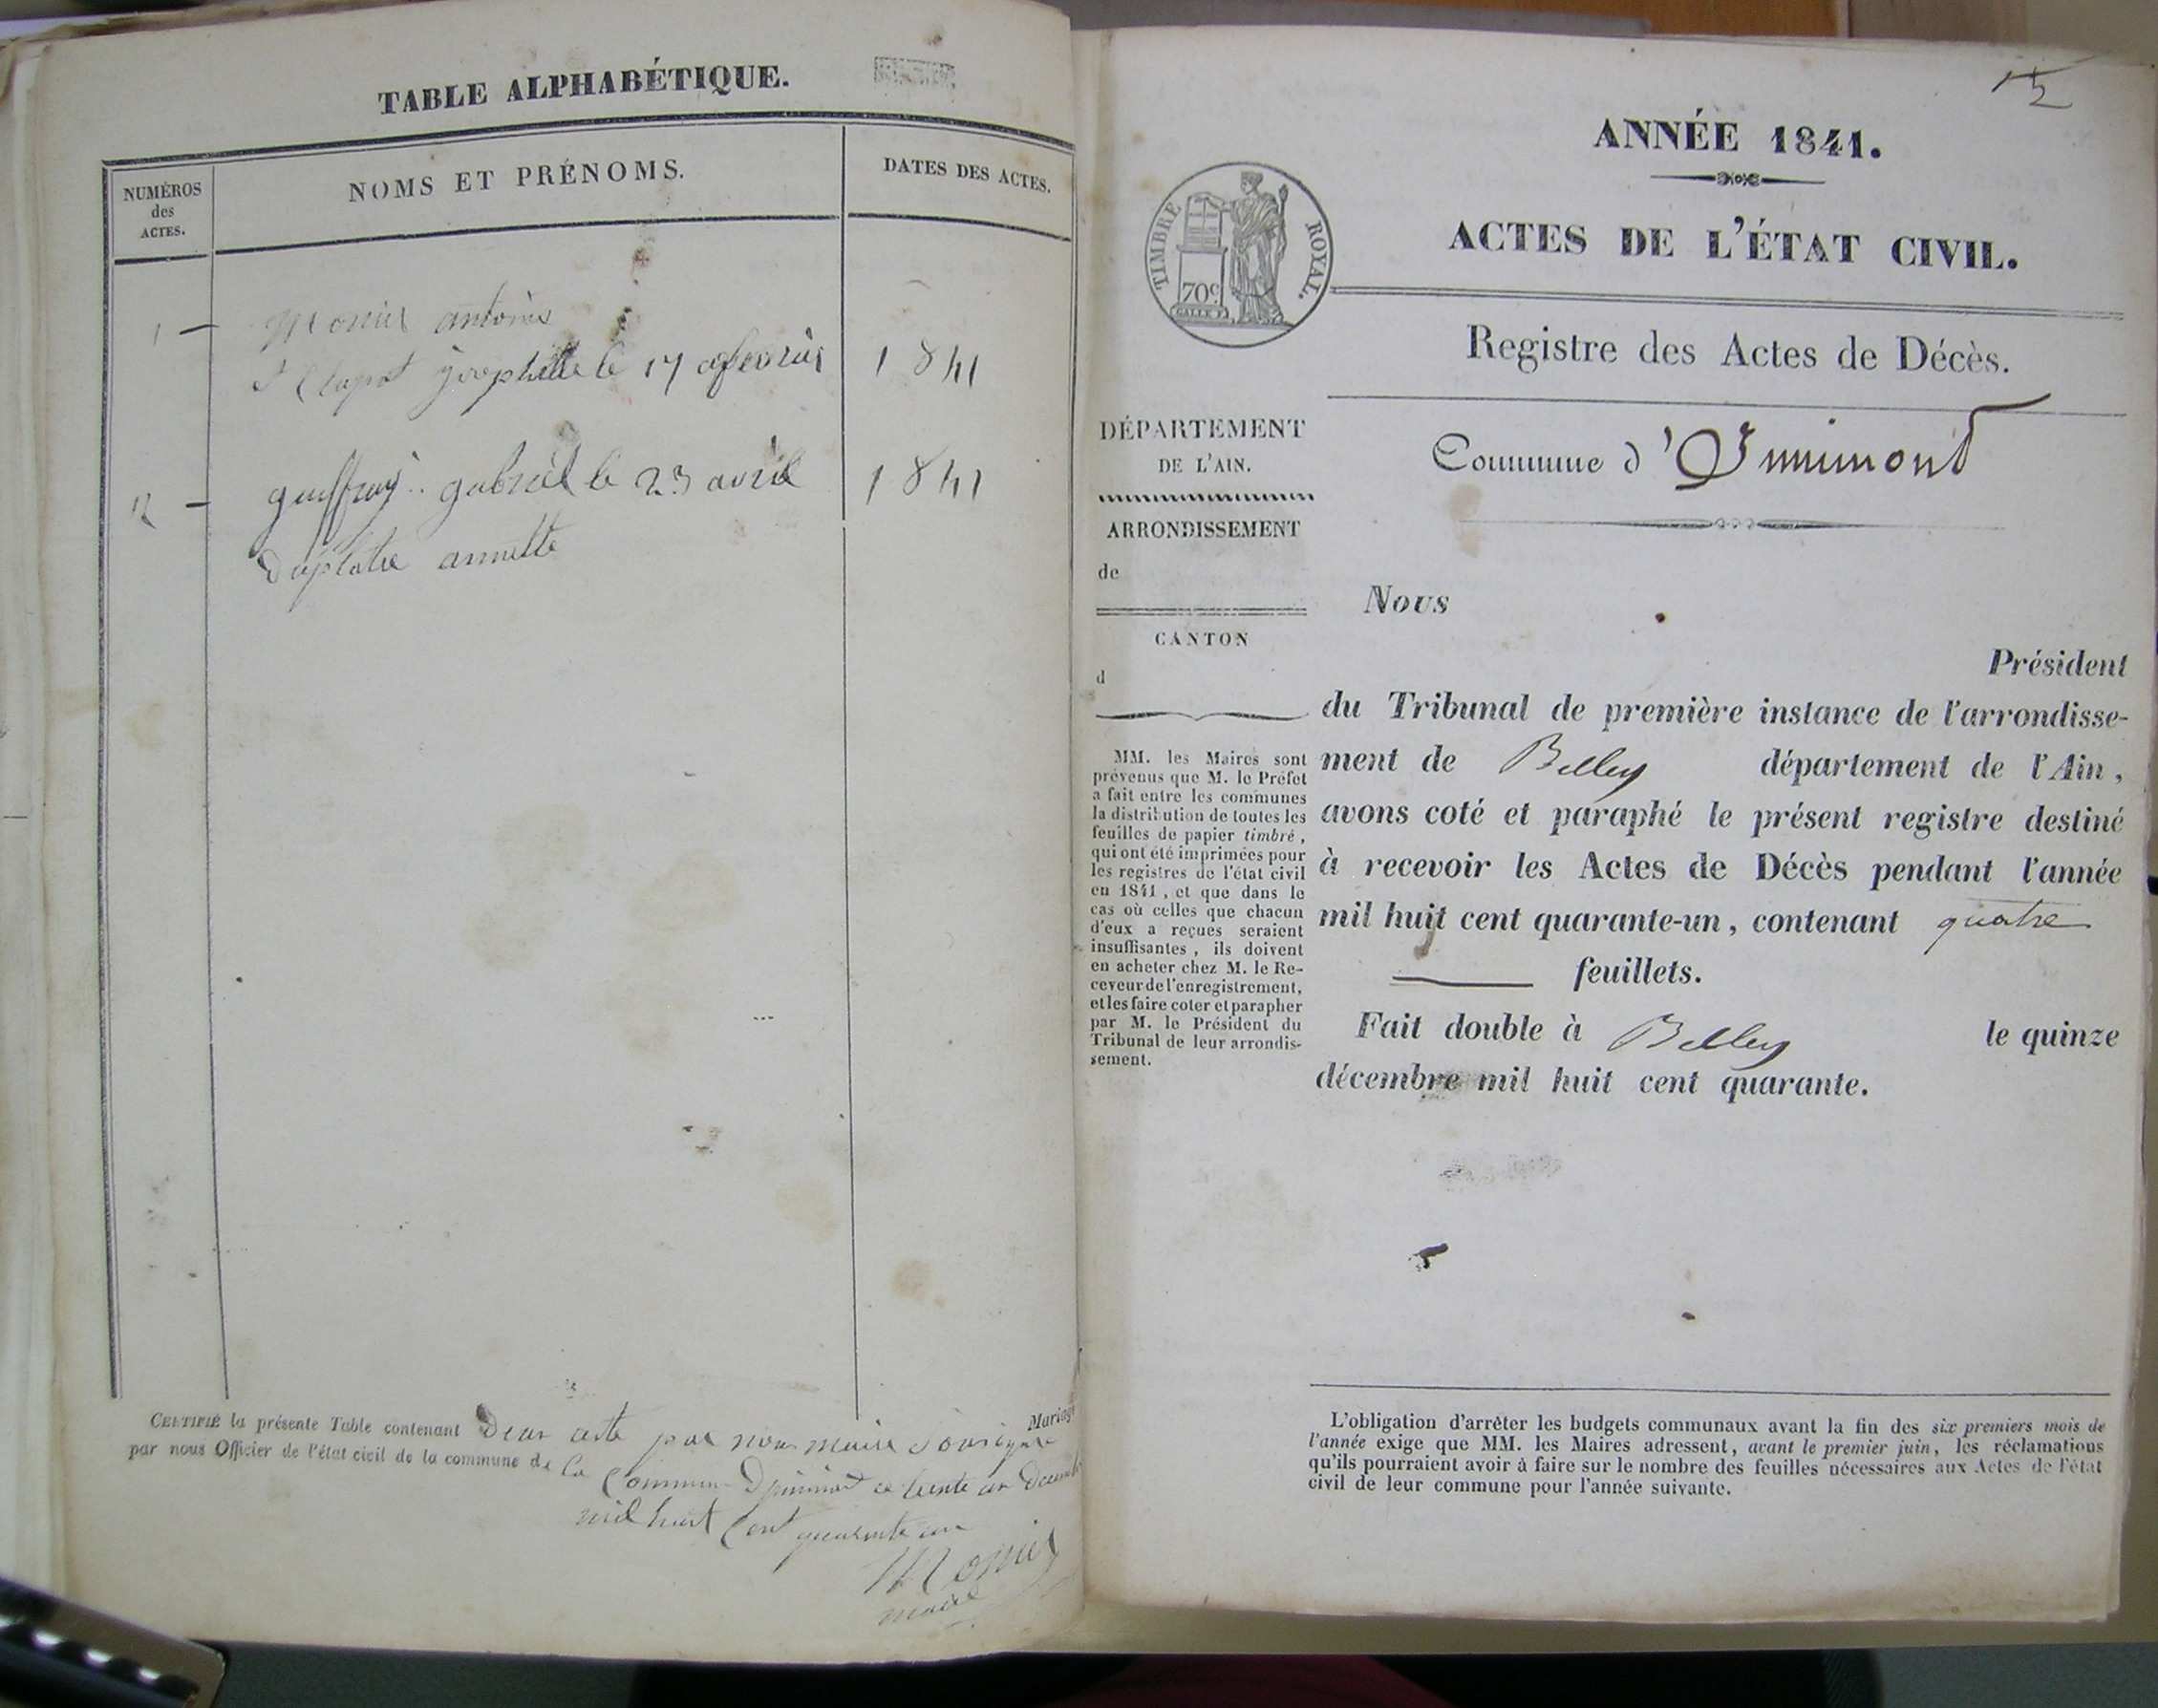 TABLE ALPHABÉTIQUE.
NUMÉROS
des
ACTES.
NOMS ET PRÉNOMS.
DATES DES ACTES.
1 — Monier antoine
josephette le 17 fevrier 1841
2 — geuffray gabriel le 23 avril 1841
annette
CERTIFIÉ la présente Table contenant Deux acte par nous maire soussigné Mariage
par nous Officier de l'état civil de la commune de la Commune ce trente un Décembre
mil huit Cent quarante un
Monier
maire
2
ANNÉE 1841.
ACTES DE L'ÉTAT CIVIL.
TIMBRE ROYAL.
70c.
Registre des Actes de Décès.
Commune d'Innimont
DÉPARTEMENT
DE L'AIN.
ARRONDISSEMENT
de
CANTON
d
MM. les Maires sont
prévenus que M. le Préfet
a fait entre les communes
la distribution de toutes les
feuilles de papier timbré,
qui ont été imprimées pour
les registres de l'état civil
en 1841, et que dans le
cas où celles que chacun
d'eux a reçues seraient
insuffisantes, ils doivent
en acheter chez M. le Re-
ceveur de l'enregistrement,
et les faire coter et parapher
par M. le Président du
Tribunal de leur arrondis-
sement.
Nous
Président
du Tribunal de première instance de l'arrondisse-
ment de Belley département de l'Ain,
avons coté et paraphé le présent registre destiné
à recevoir les Actes de Décès pendant l'année
mil huit cent quarante-un, contenant quatre
feuillets.
Fait double à Belley le quinze
décembre mil huit cent quarante.
L'obligation d'arrêter les budgets communaux avant la fin des six premiers mois de
l'année exige que MM. les Maires adressent, avant le premier juin, les réclamations
qu'ils pourraient avoir à faire sur le nombre des feuilles nécessaires aux Actes de l'état
civil de leur commune pour l'année suivante.